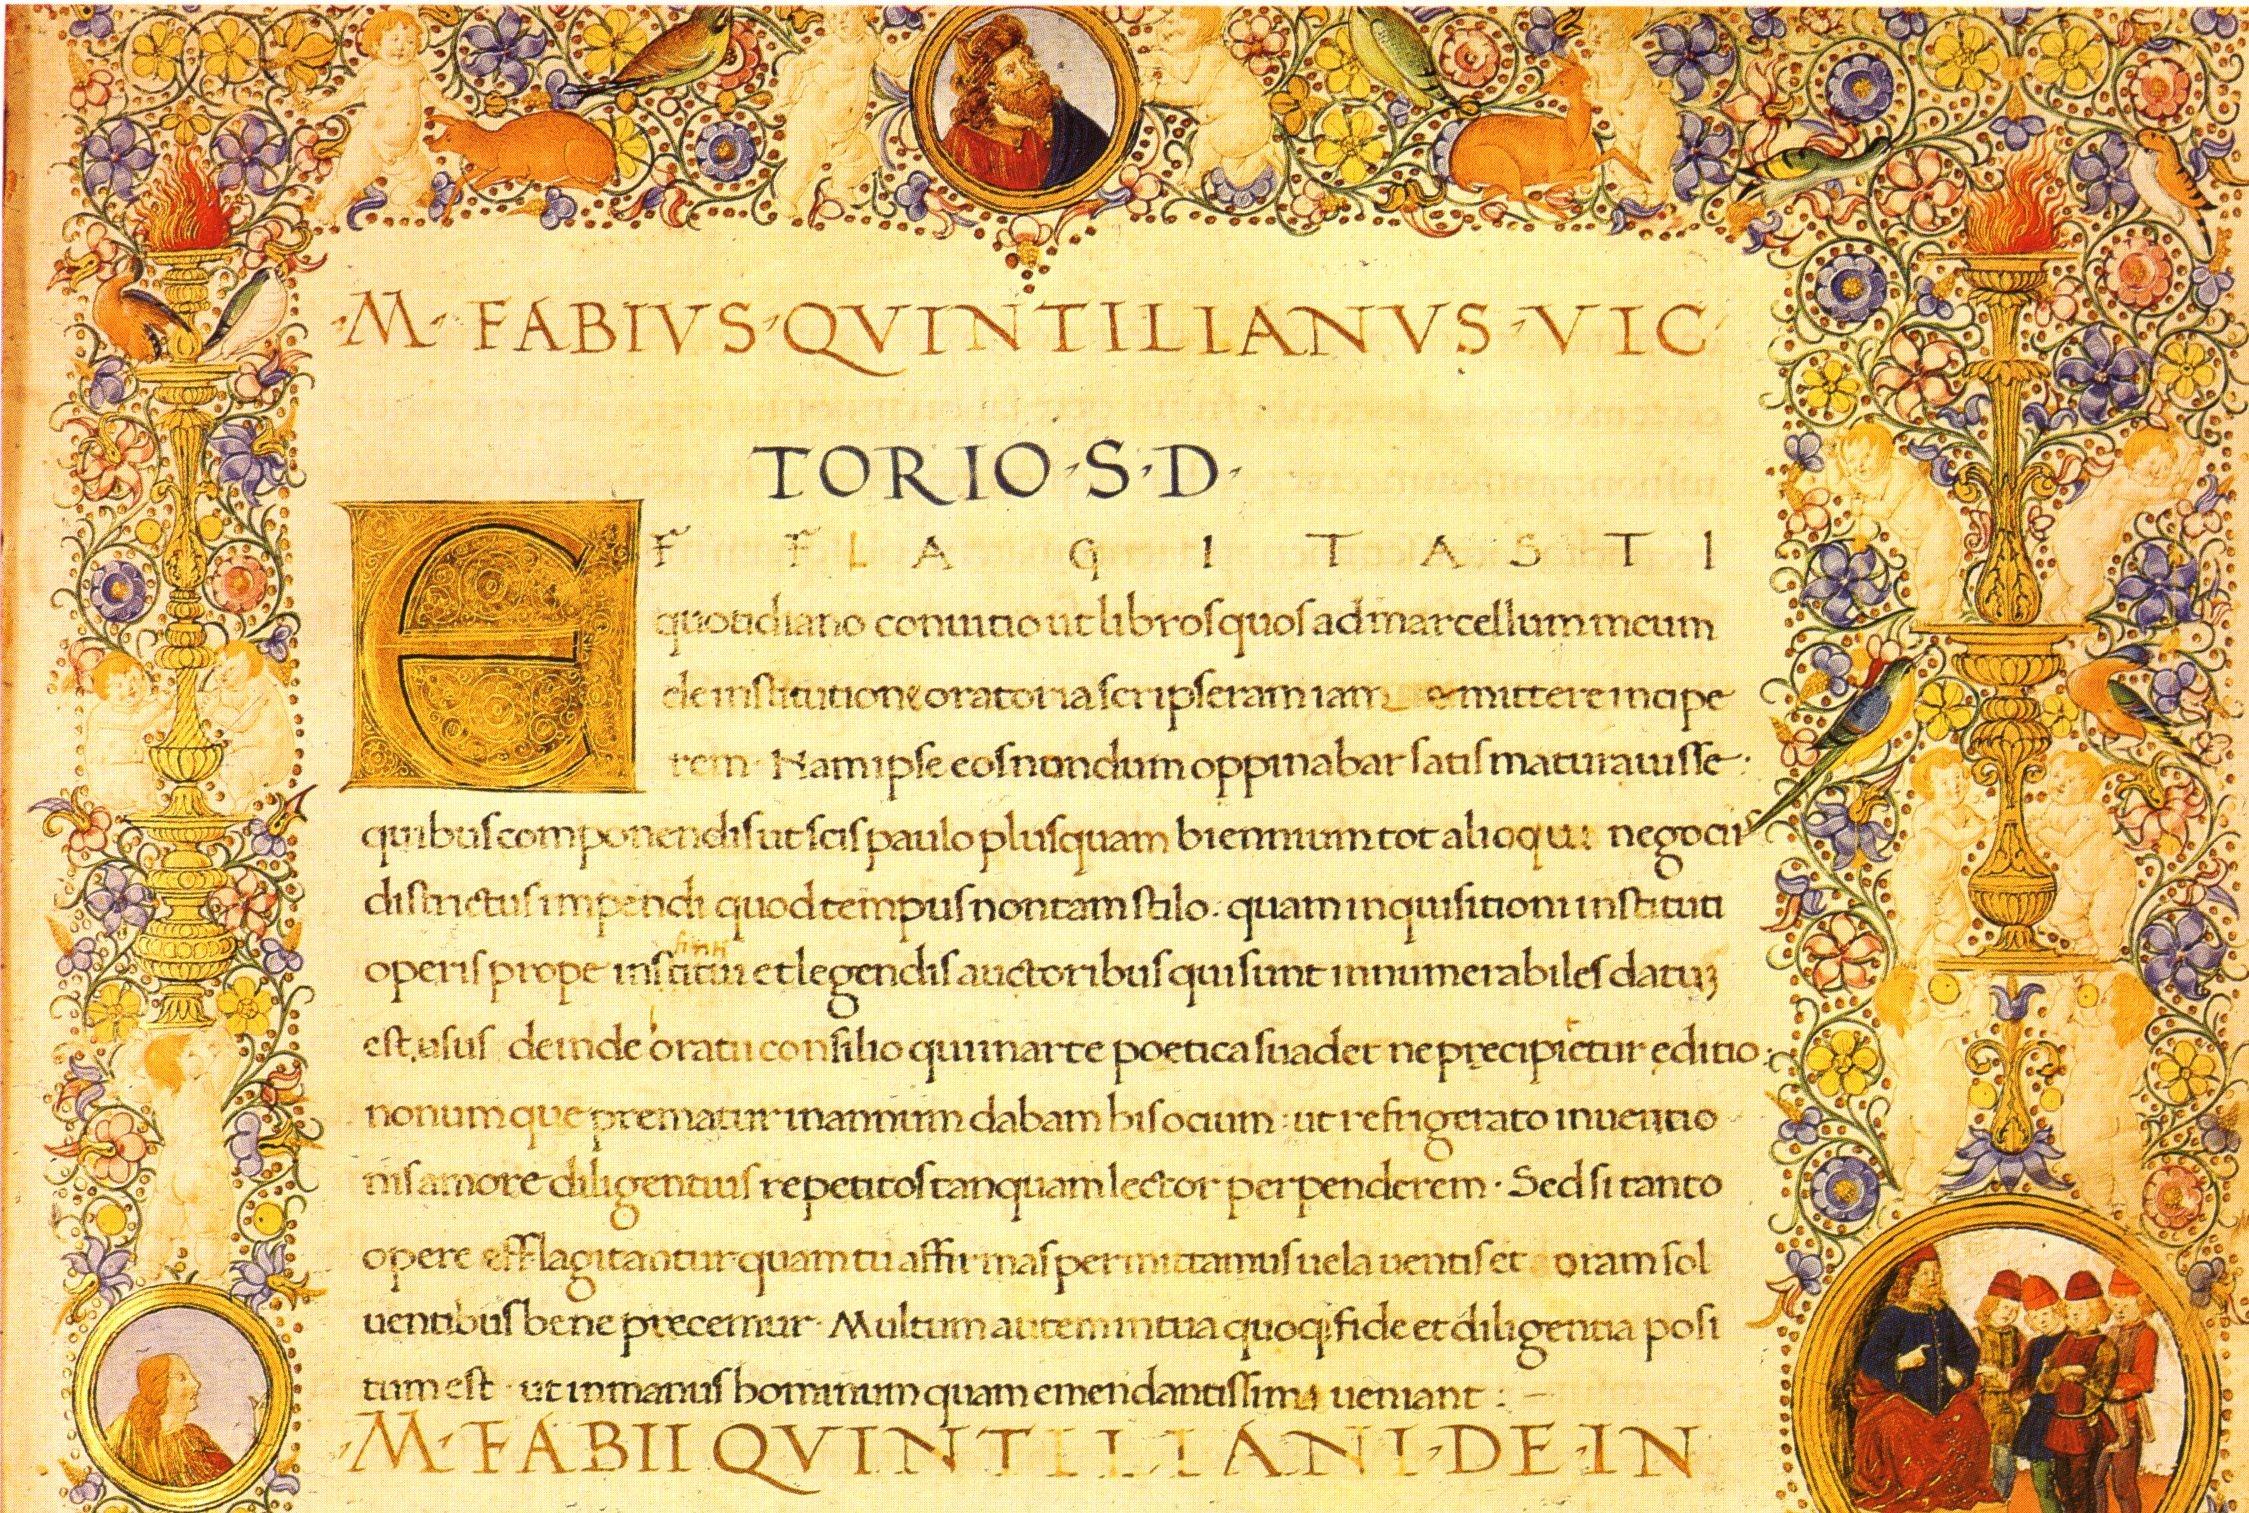 ·M·FABIVS·QVINTILIANVS·VIC
TORIO·S·D·
EFFLAGITASTI
quotidiano conuitio ut libros quos ad marcellum meum
de institutione oratoria scripseram iam emittere incipe
rem· Nam ipse eos nondum oppinabar satis maturauisse·
quibus componendis ut scis paulo plus quam biennium tot alioqui negociis
districtus impendi quod tempus non tam stilo· quam inquisitioni instituti
operis prope institui et legendis auctoribus qui sunt innumerabiles datuʒ
est, usus deinde oratii consilio qui in arte poetica suadet ne precipietur editio·
nonumque prematur in annum dabam his ocium· ut refrigerato inuentio
nis amore diligentius repetitos tanquam lector perpenderem· Sed si tanto
opere efflagitantur quam tu affirmas permittamus uela uentis et oram sol
uentibus bene precemur· Multum autem in tua quoqꝫ fide et diligentia posi
tum est· ut in manus hominum quam emendantissima ueniant: –
·M·FABII QVINTILIANI·DE·IN